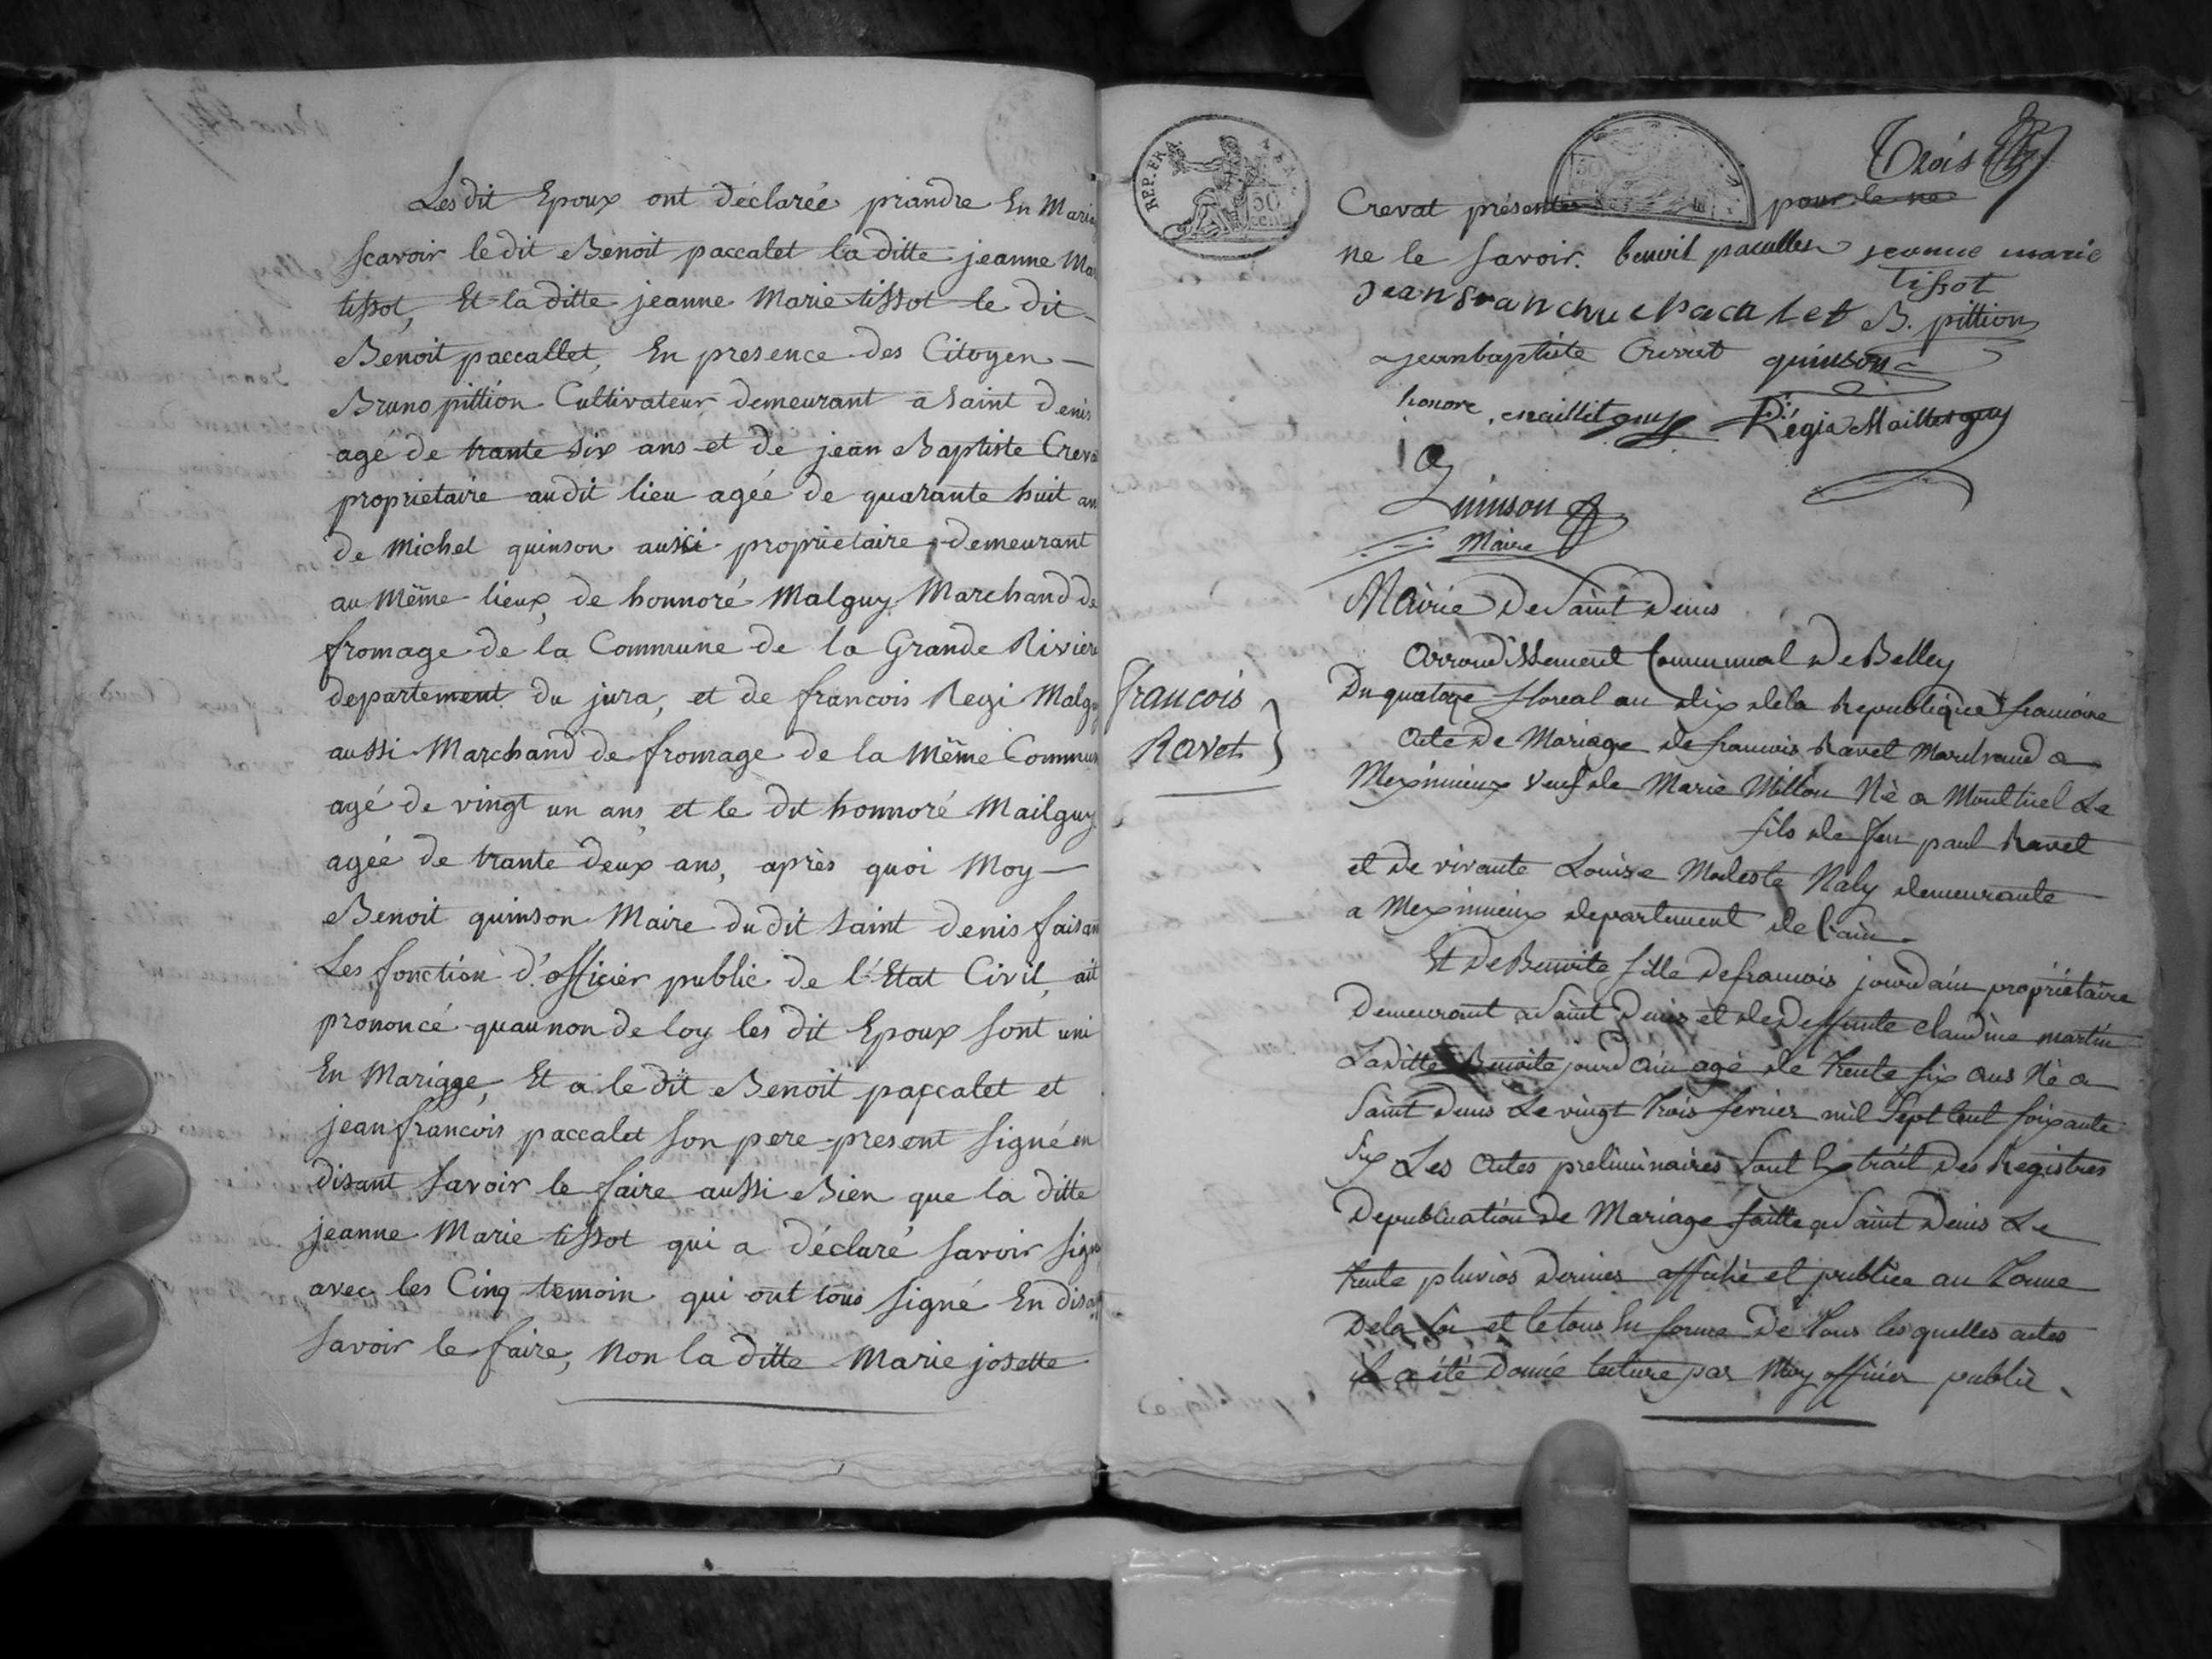 Les dit Epoux ont déclarée prandre En Maria
scavoir le dit Benoit paccalet la ditte jeanne Ma
tissot, Et la ditte jeanne Marie tissot le dit
Benoit paccallet, En presence des Citoyen
Bruno pittion Cultivateur demeurant a saint denis
agé de trante six ans et de jean Baptiste Creva
proprietaire audit lieu agée de quarante huit an
de Michel quinson aussi proprietaire demeurant
au Même lieux, de honnoré Malguy Marchand de
fromage de la Commune de la Grande Riviere
departement du jura, et de francois Regi Malgu
aussi Marchand de fromage de la Même Commun
agé de vingt un ans, et le dit honnoré Mailguy
agée de trante deux ans, après quoi Moy
Benoit quinson Maire dudit saint denis faisan
Les fonction d'officier public de l'Etat Civil, ait
prononcé quaunon de loy les dit Epoux sont uni
En Mariage, Et a le dit Benoit paccalet et
jean francois paccalet son pere present signé en
disant savoir le faire aussi Bien que la ditte
jeanne Marie tissot qui a déclaré savoir sign
avec les Cinq temoin qui ont tous signé En disan
savoir le faire, Non la ditte Marie josette
REP. FRA. 50 cent.
50
Trois
Crevat présente pour le ne
ne le savoir. benoit pacallet jeanne marie
Tissot
jean franchue pacalet B. pittion
jean baptiste Crevat quinson
honore maillet guy Régis Maillet guy
Quinson
Maire
Mairie De Saint Denis
Arrondissement Communal De Belley
francois
Ravet
Du quatorze floreal an dix de la Republique francoise
Acte De Mariage de francois Ravet Marchand a
Meximieux Veuf de Marie Millon Né a Montluel Le
fils de feu paul Ravet
et De vivante Louise Modeste Naly demeurante
a Meximieux departement de l'ain
Et De Benoite fille de francois jourdain propriétaire
Demeurant a Saint Denis et de Deffunte claudine martin
Laditte Benoite jourdain agé de Trente six ans Né a
Saint Denis Le vingt Trois fevrier mil Sept Cent soixante
Six Les Actes preliminaires Sont Extrait Des Registres
De publication De Mariage faitte a Saint Denis Le
Trente pluvios Dernier affiché et publiée au Terme
De la Loi et le tous En forme De Tous les quelles actes
il a été Donné lecture par Moy officier public